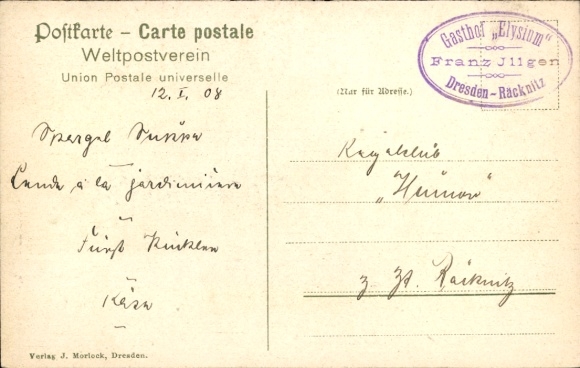 Postkarte – Carte postale
Weltpostverein
Union Postale universelle
12. I. 08
Spargel Suppe
Lende à la jardinière
Fürst Pückler
Käse
(Nur für Adresse.)
Gasthof „Elysium“
Franz Jllgen
Dresden-Räcknitz
Kegelclub
„Humor“
z. Zt. Räcknitz
Verlag J. Morlock, Dresden.